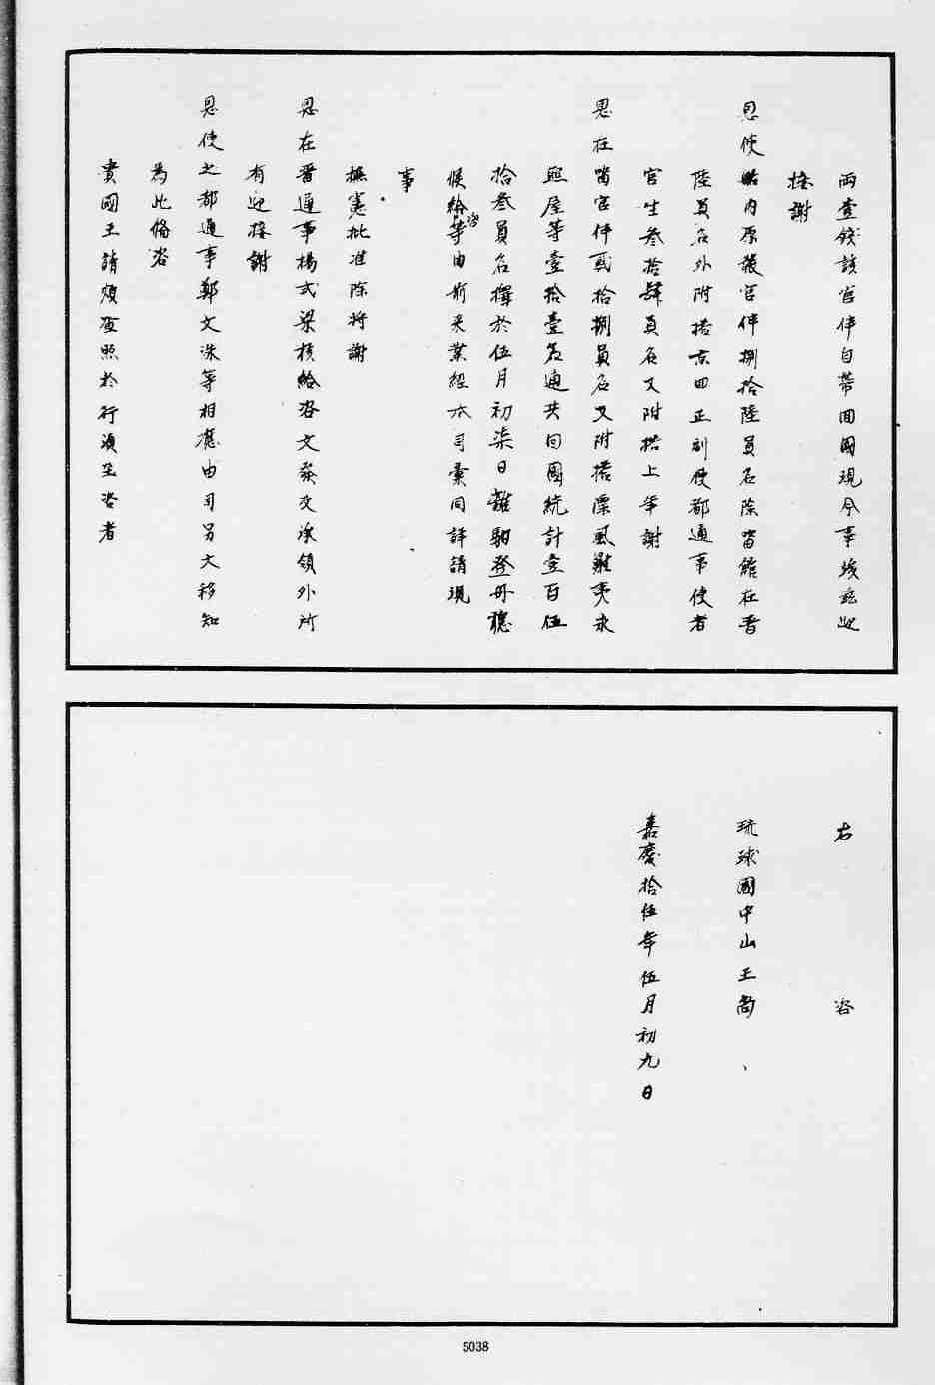 兩壹錢該官伴自帶回國現今事竣兹迎
接謝
恩使船内原報官伴捌拾陸員名除留館在番
陸員名外附搭京回正副使都通事使者
官生叁拾肆員名又附搭上年謝
恩在留官伴貳拾捌員名又附搭漂風難夷永
熙屋等壹拾壹名通共回國統計壹百伍
拾叁員名擇於伍月初柒日離馹登舟聽
候給咨等由前來業經本司彙同詳請現
事
撫憲批准除將謝
恩在番通事楊式梁核給咨文發交承領外所
有迎接謝
恩使之都通事鄭文洙等相應由司另文移知
為此備咨
貴國王請煩查照於行須至咨者
右咨
琉球國中山王尚、
嘉慶拾伍年伍月初九日
5038